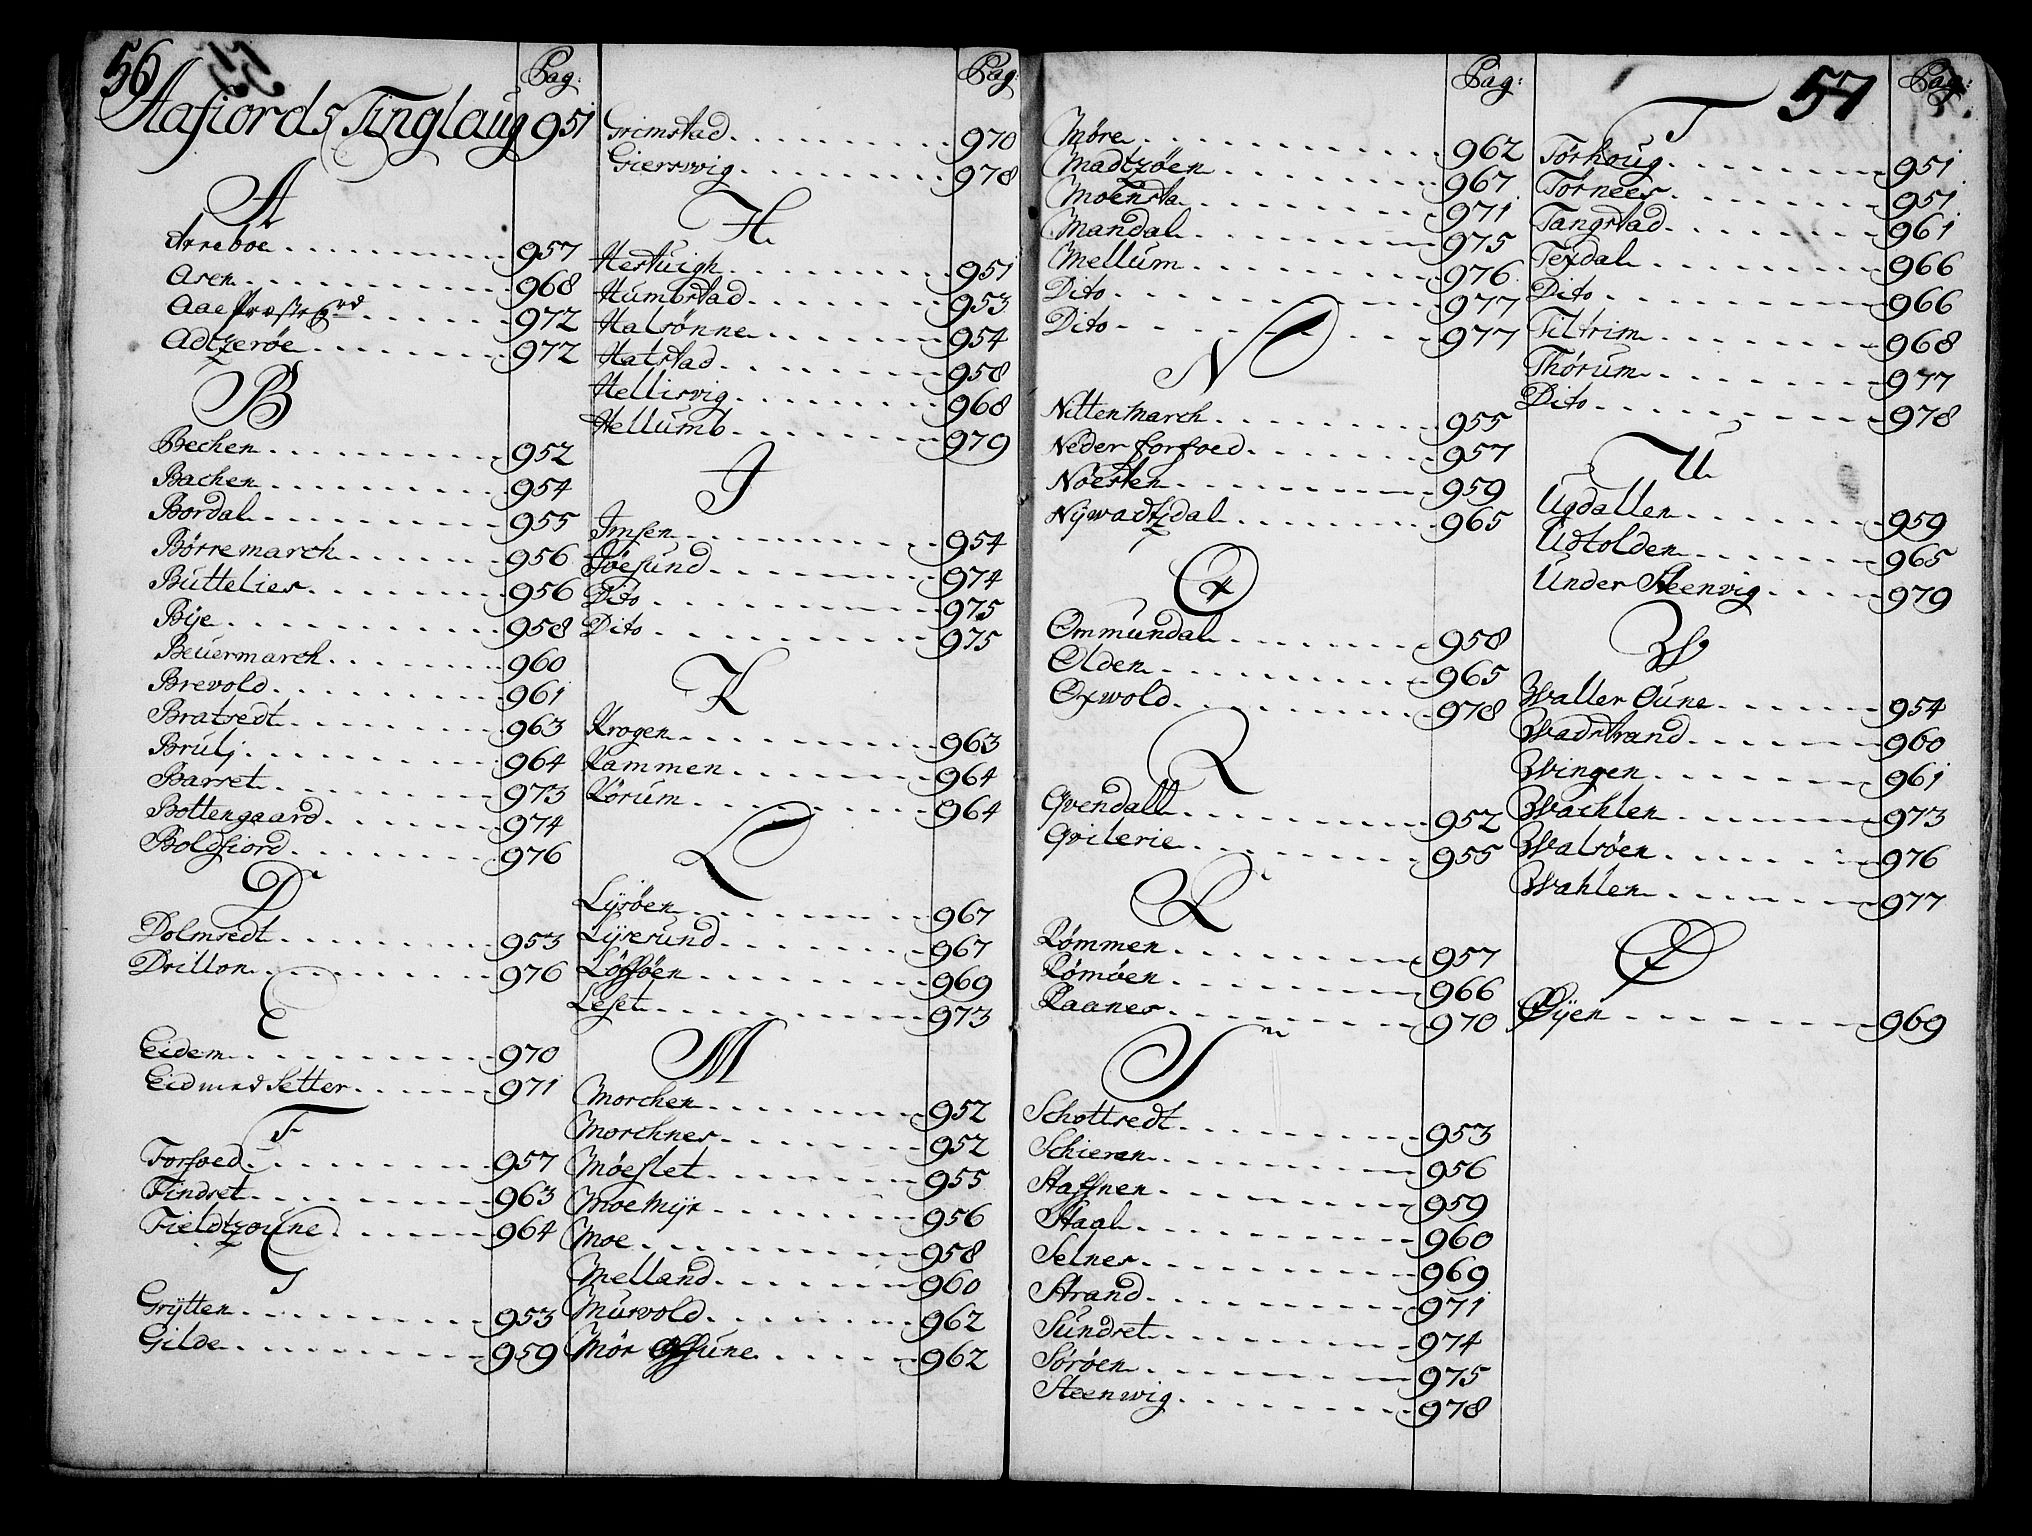 56
Pag:
Aafiords Tinglaug 951
A
Arreboe 957
Aren 968
Aae Præste Grd 972
Adtzerøe 972
B
Bechen 952
Bachen 954
Bordal 955
Børremarch 956
Buttelies 956
Bije 958
Beuermarch 960
Brevold 961
Bratsedt 963
Brulj 964
Barret 973
Bottengaard 974
Boldfiord 976
D
Dolmsedt 953
Drillon 976
E
Eidem 970
Eidmend Setter 971
F
Forfoed 957
Findret 963
Fieldtzoune 964
G
Grÿtten 953
Gilde 959
Pag:
Grimstad 970
Gierswig 978
H
Hestuigh 951
Humbstad 953
Halsønne 954
Halstad 958
Hellisvig 968
Hellumb 979
J
Imsen 954
Jøesund 974
Dito 975
Dito 975
K
Krogen 963
Kammen 964
Kørum 964
L
Lÿsøen 967
Lÿsesund 967
Løssøen 969
Leset 973
M
Morchen 952
Morchnes 952
Møeslet 955
Moe Mijr 956
Moe 958
Melland 960
Murvold 962
Mør Assune 962
Pag:
Møre 962
Madtzøen 967
Moensta 971
Mandal 975
Mellum 976
Dito 977
Dito 977
N
Nittenmarch 955
Neder forfoed 957
Nøesten 959
Nÿwadtzdal 965
O
Ommundal 958
Olden 965
Oxwold 978
Q
Qvendall 952
Qvilerie 955
R
Rømmen 957
Rømøen 966
Raanes 970
S
Schottsedt 953
Schieren 956
Staffnen 959
Staal 960
Selnes 969
Strand 971
Sundret 974
Sørøen 975
Steenwig 978
57
Pag:
T
Tørhoug 951
Tørnees 951
Tangstad 961
Texdal 966
Dito 966
Tiltrim 968
Thørum 977
Dito 978
U
Ugdallen 959
Udtolden 965
Under Steenvig 979
W
Waller Oune 954
Wadstrand 960
Wingen 961
Wachlen 973
Walsøen 976
Wahlen 977
Ø
Øÿen 969